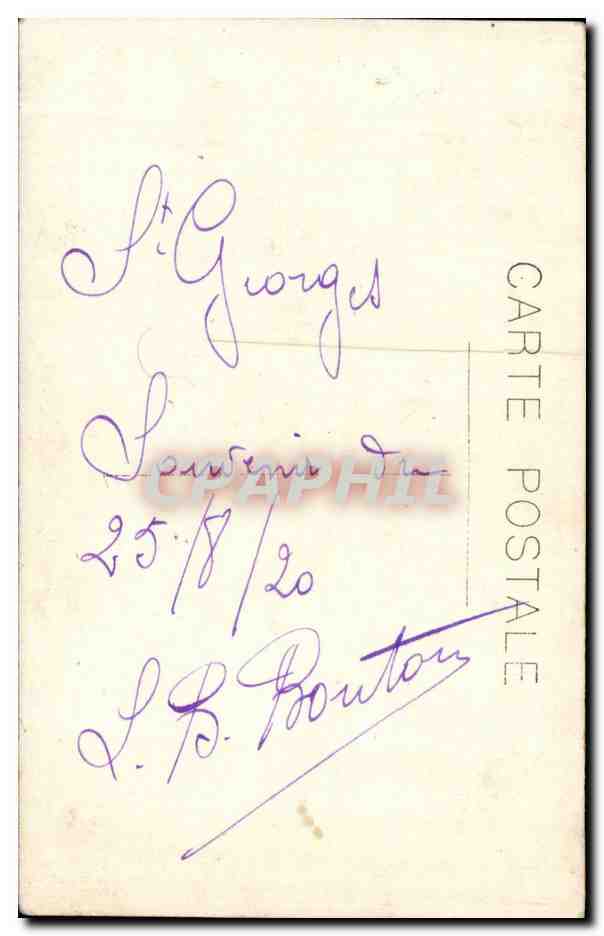 St. Georges
Souvenir du
25/8/20
L. B. Bouton
CARTE POSTALE
CPAPHIL